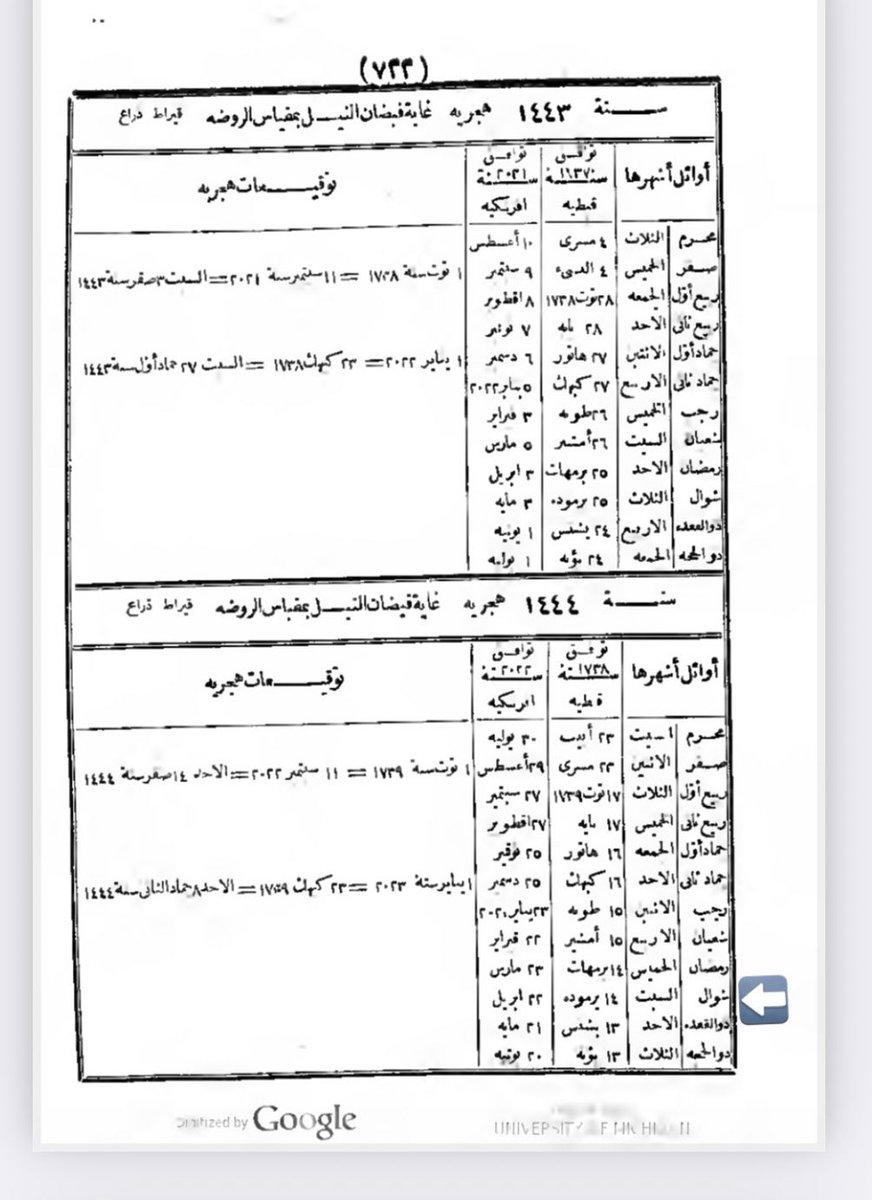 (٧٣٣)
سنة ١٤٤٣ هجريه غاية فيضان النيل بمقياس الروضه قيراط ذراع
أوائل أشهرها توفق سنة ١٧٣٧ قبطيه توافق سنة ٢٠٢١ افرنكيه توقيعات هجريه
محرم الثلاث ٤ مسرى ١٠ أغسطس
صفر الخميس ٤ النسىء ٩ سبتمبر ١ توت سنة ١٧٣٨ = ١١ سبتمبر سنة ٢٠٢١ = السبت ٣ صفر سنة ١٤٤٣
ربيع أول الجمعه ٢٨ توت ١٧٣٨ ٨ اقطوبر
ربيع ثانى الاحد ٢٨ بابه ٧ نوفبر
جماد أول الاثنين ٢٧ هاتور ٦ دسمبر ١ يناير ٢٠٢٢ = ٢٣ كيهك ١٧٣٨ = السبت ٢٧ جماد أول سنة ١٤٤٣
جماد ثانى الاربع ٢٧ كيهك ٥ يناير ٢٠٢٢
رجب الخميس ٢٦ طوبه ٣ فبراير
شعبان السبت ٢٦ أمشير ٥ مارس
رمضان الاحد ٢٥ برمهات ٣ ابريل
شوال الثلاث ٢٥ برموده ٣ مايه
ذوالقعده الاربع ٢٤ بشنس ١ يونيه
ذوالحجه الجمعه ٢٤ بؤنه ١ يوليه
سنة ١٤٤٤ هجريه غاية فيضان النيل بمقياس الروضه قيراط ذراع
أوائل أشهرها توفق سنة ١٧٣٨ قبطيه توافق سنة ٢٠٢٢ افرنكيه توقيعات هجريه
محرم السبت ٢٣ أبيب ٣٠ يوليه
صفر الاثنين ٢٣ مسرى ٢٩ أغسطس ١ توت سنة ١٧٣٩ = ١١ سبتمبر ٢٠٢٢ = الاحد ١٤ صفر سنة ١٤٤٤
ربيع أول الثلاث ١٧ توت ١٧٣٩ ٢٧ سبتمبر
ربيع ثانى الخميس ١٧ بابه ٢٧ اقطوبر
جماد أول الجمعه ١٦ هاتور ٢٥ نوفبر
جماد ثانى الاحد ١٦ كيهك ٢٥ دسمبر ١ يناير سنة ٢٠٢٣ = ٢٣ كيهك ١٧٣٩ = الاحد ٨ جماد الثانى سنة ١٤٤٤
رجب الاثنين ١٥ طوبه ٢٣ يناير
شعبان الاربع ١٥ أمشير ٢٢ فبراير
رمضان الخميس ١٤ برمهات ٢٣ مارس
شوال السبت ١٤ برموده ٢٢ ابريل
ذوالقعده الاحد ١٣ بشنس ٢١ مايه
ذوالحجه الثلاث ١٣ بؤنه ٢٠ يونيه
Digitized by Google
UNIVERSITY OF MICHIGAN